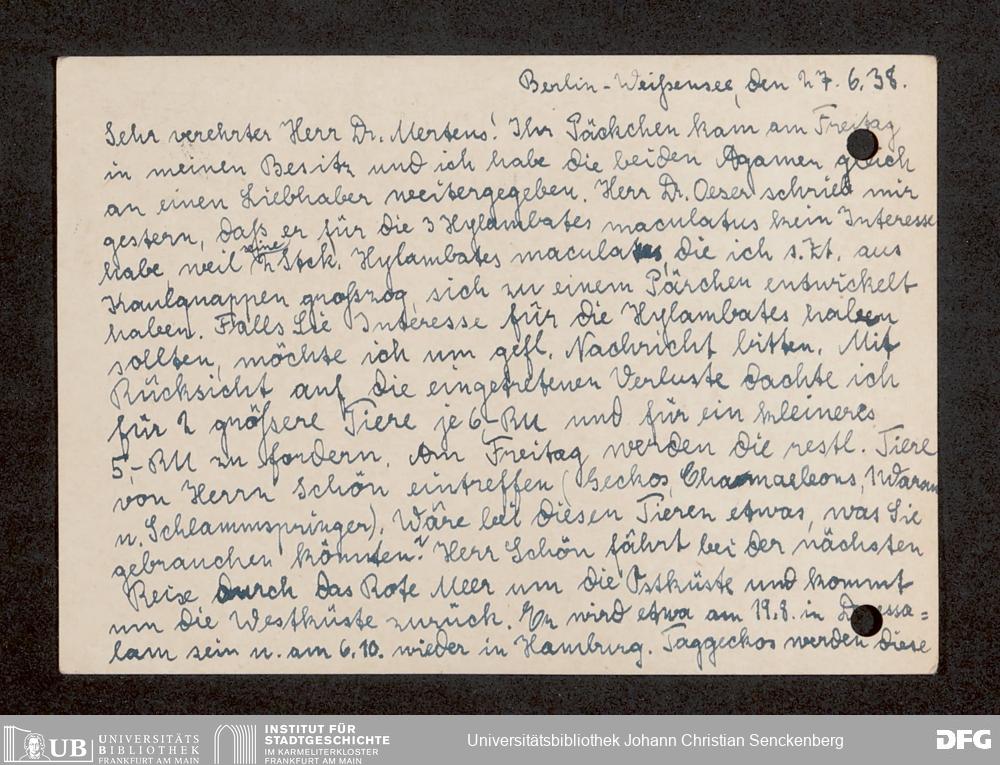 Berlin-Weißensee, den 27. 6. 38.
Sehr verehrter Herr Dr. Mertens! Ihr Päckchen kam am Freitag
in meinen Besitz und ich habe die beiden Agamen gleich
an einen Liebhaber weitergegeben. Herr Dr. Oeser schrieb mir
gestern, daß er für die 3 Hylambates maculatus kein Interesse
habe, weil seine 2 Stck. Hylambates maculatus, die ich s. Zt. aus
Kaulquappen großzog, sich zu einem Pärchen entwickelt
haben. Falls Sie Interesse für die Hylambates haben
sollten, möchte ich um gefl. Nachricht bitten. Mit
Rücksicht auf die eingetretenen Verluste dachte ich
für 2 größere Tiere je 6,- RM und für ein kleineres
5,- RM zu fordern. Am Freitag werden die restl. Tiere
von Herrn Schön eintreffen (Geckos, Chamaeleons, 1 Waran
u. Schlammspringer). Wäre bei diesen Tieren etwas, was Sie
gebrauchen könnten? Herr Schön fährt bei der nächsten
Reise durch das Rote Meer um die Ostküste und kommt
um die Westküste zurück. Er wird etwa am 19.8. in Daressa=
lam sein u. am 6.10. wieder in Hamburg. Taggeckos werden diese
UB UNIVERSITÄTS
BIBLIOTHEK
FRANKFURT AM MAIN
INSTITUT FÜR
STADTGESCHICHTE
IM KARMELITERKLOSTER
FRANKFURT AM MAIN
Universitätsbibliothek Johann Christian Senckenberg
DFG